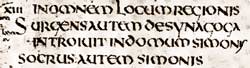 XIII INOMNEM LOCUMREGIONIS
SURGENSAUTEM DESYNAGOGA
INTROIUIT INDOMUM SIMONIS
SOCRUS AUTEM SIMONIS